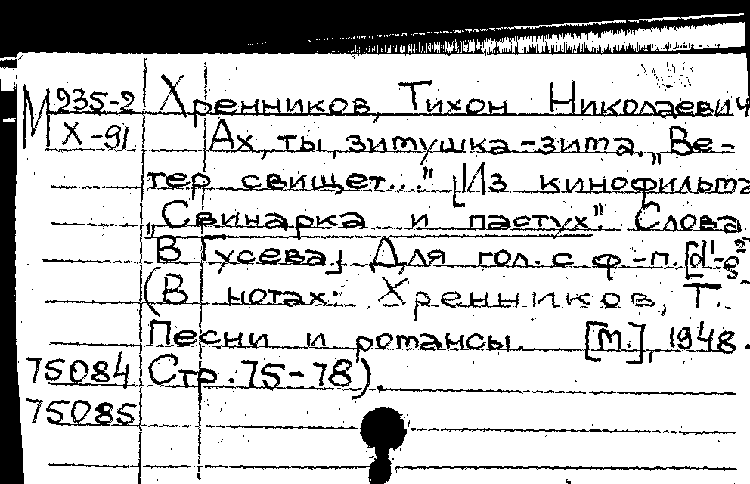 М 935-2 Хренников, Тихон Николаевич
Х-91 Ах, ты, зимушка-зима. „Ве-
тер свищет..." [Из кинофильма
„Свинарка и пастух". Слова
В Гусева] Для гол. с ф-п. [d¹-g²]
(В нотах: Хренников, Т.
Песни и романсы. [М.], 1948.
75084 Стр. 75-78).
75085